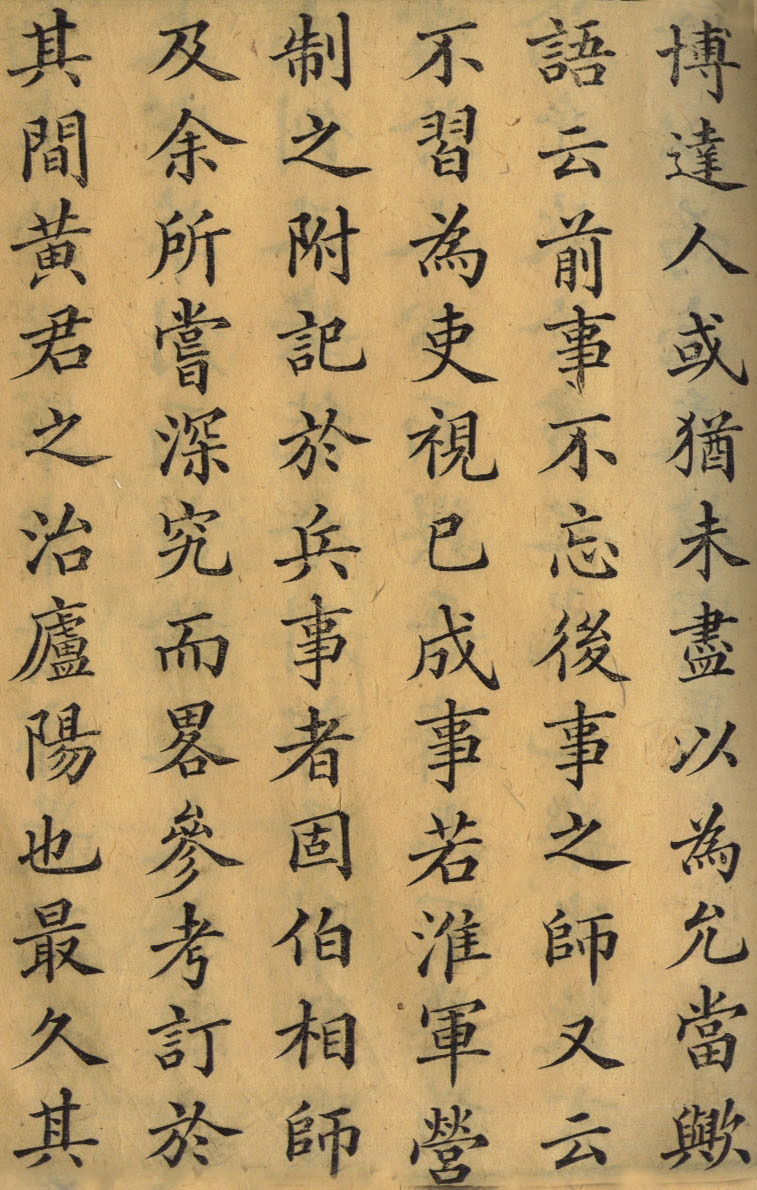 博達人或猶未盡以為允當歟
語云前事不忘後事之師又云
不習為吏視已成事若淮軍營
制之附記於兵事者固伯相師
及余所嘗深究而畧參考訂於
其間黃君之治廬陽也最久其